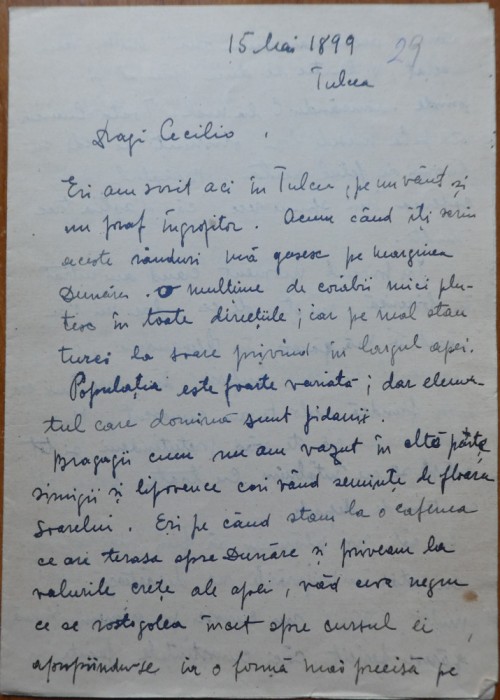 15 Mai 1899
29
Tulcea
Dragi Cecilio,
Eri am sosit aci în Tulcea, pe un vânt și
un praf îngrozitor. Acum când îți scriu
aceste rânduri mă găsesc pe marginea
Dunărei. O mulțime de corăbii mici plu-
tesc în toate direcțiile; iar pe mal stau
turci la soare privind în largul apei.
Populația este foarte variată; dar elemen-
tul care domină sunt jidanii.
Bragagii cum nu am văzut în altă parte
simigii și lipovence cari vând semințe de floarea
soarelui. Eri pe când stam la o cafenea
ce are terasa spre Dunăre și priveam la
valurile crețe ale apei, văd ceva negru
ce se rostogolea încet spre cursul ei,
apropiindu-se ia o formă mai precisă pe